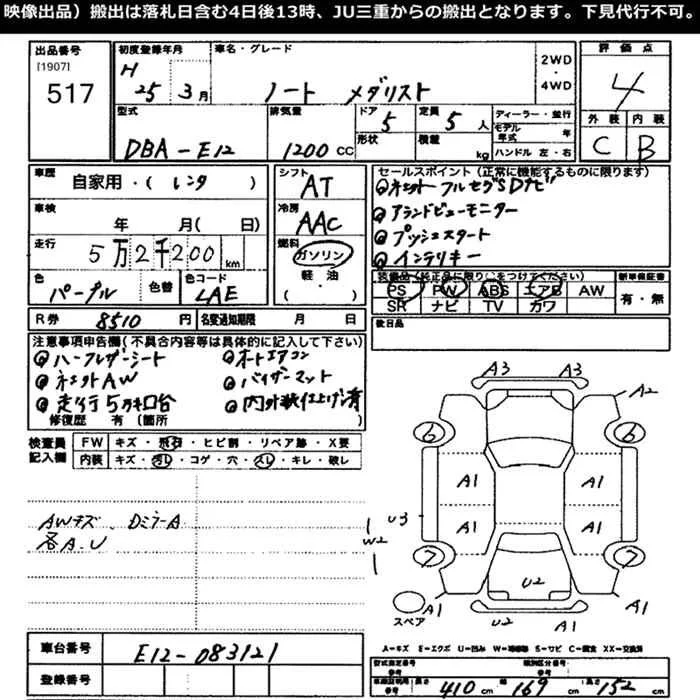 映像出品）搬出は落札日含む4日後13時、JU三重からの搬出となります。下見代行不可。
出品番号
[1907]
517
初度登録年月
H
25年 3月
車名・グレード
ノート メダリスト
2WD
・
4WD
評価点
4
外装 内装
C B
型式
DBA-E12
排気量
1200 CC
ドア 5
形状
定員 5 人
積載 kg
ディーラー・並行
モデル年式 年
ハンドル 左・右
車歴
自家用・( レンタ )
車検
年 月( 日)
走行
5万2千200 km
色
パープル
色替
色コード
LAE
シフト
AT
冷房
AAC
燃料
ガソリン
軽・油
( )
セールスポイント（正常に機能するものに限ります）
フルセグSDナビ
アランドビューモニター
プッシュスタート
インテリキー
装備品(純正品に限り○をつけてください)
PS PW ABS エアB AW
SR ナビ TV カワ
新車保証書
有・無
後日品
R券 8510 円
名変通知期限 月 日
注意事項申告欄（不具合内容等は具体的に記入して下さい）
ハーフレザーシート
オートエアコン
AW
バイザーマット
走行5万キロ台
内外装仕上げ済
修復歴 有（箇所
検査員
記入欄
FW キズ・飛石・ヒビ割・リペア跡・X要
内装 キズ・汚レ・コゲ・穴・スレ・キレ・破レ
AWキズ、DミラーA
各A.U
A3 A3
A2
6 6
A1 A1
A1 A1
U3
W2
7 7
U2
A1 U2 A1
スペア
A=キズ E=エクボ U=凹み W=補修跡 S=サビ C=腐食 XX=交換済
車台番号
E12-083121
登録番号
型式指定番号
参考
類別区分番号
参考
車検証明用 参考
長さ 410 cm
幅 169 cm
高さ 152 cm